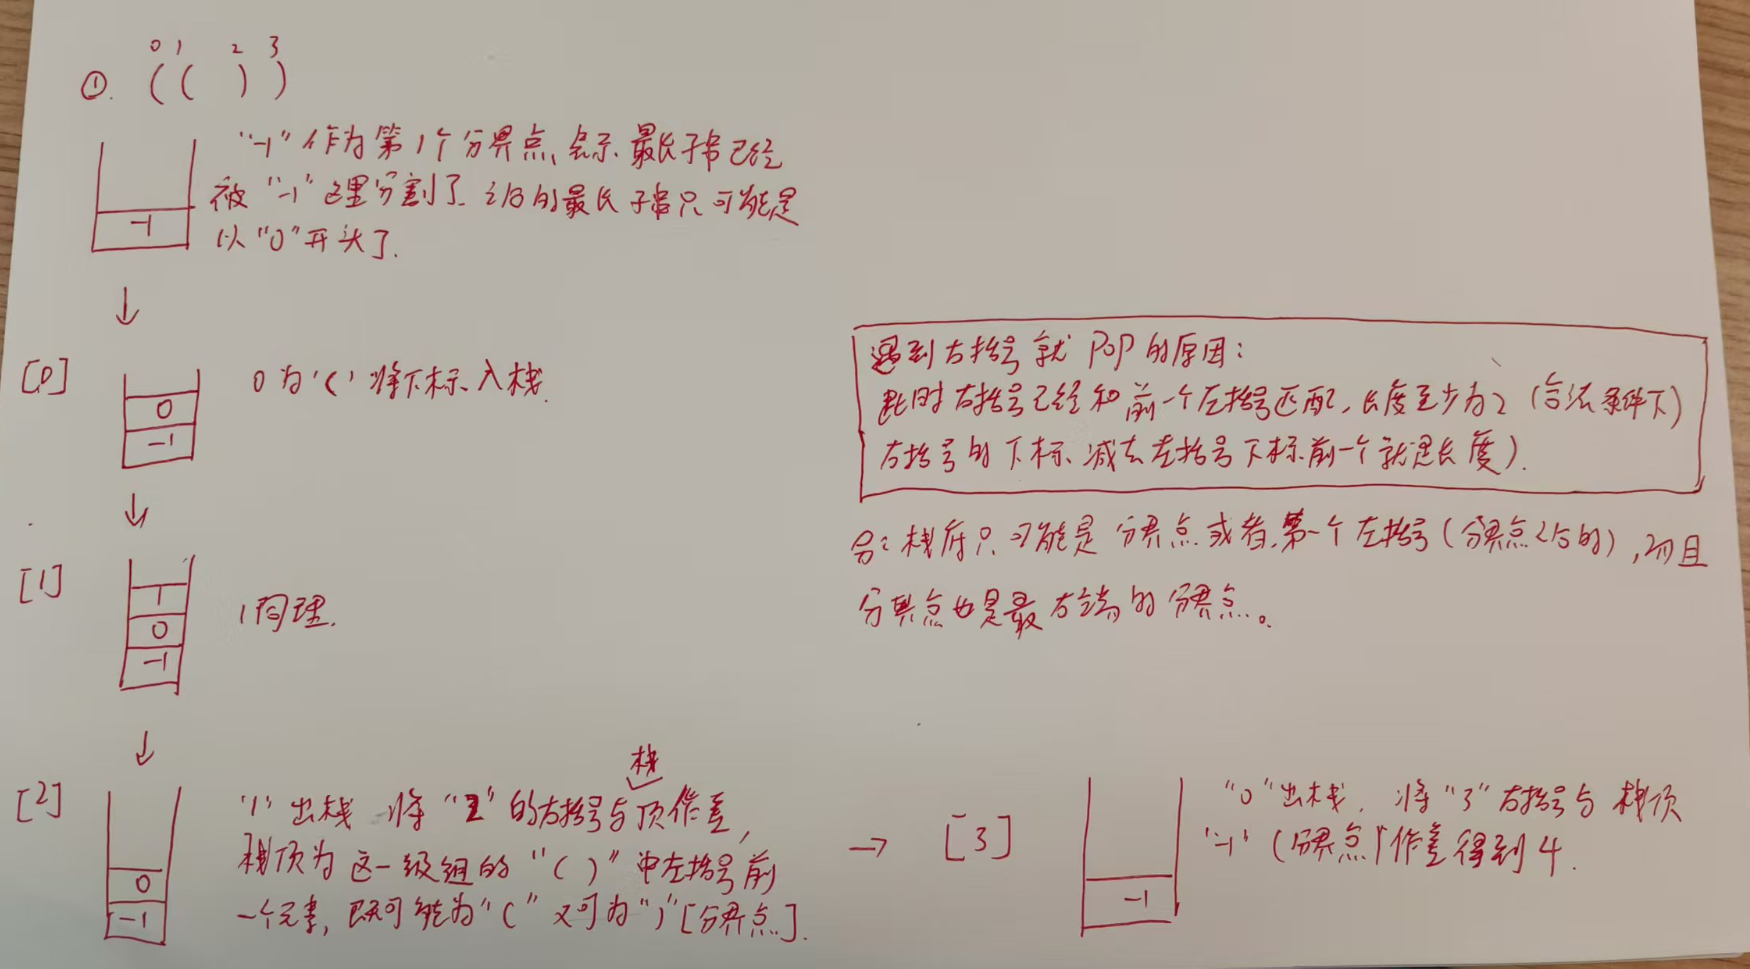 0 1 2 3
①. ( ( ) )
"-1" 作为第1个分界点、表示、最长子串已经
被 "-1" 这里分割了. 之后的最长子串只可能是
以 "0" 开头了.
-1
↓
[0]
0
-1
0 为 '(' 将下标入栈.
↓
[1]
1
0
-1
1 同理.
↓
[2]
0
-1
栈
'1' 出栈 将 "2" 的右括号与顶作差,
栈顶为 这一级组的 "( )" 中左括号前
一个元素, 既可能为 "(" 又可为 ")" [分界点].
遇到右括号 就 POP 的原因:
此时右括号已经和前一个左括号匹配, 长度至少为2 (合法条件下)
右括号的下标、减去左括号下标前一个就是长度).
栈底只可能是 分界点 或者 第一个 左括号 (分界点之后的), 而且
分界点也是最右端的分界点。
→ [3]
-1
"0" 出栈. 将 "3" 右括号与 栈顶
"-1" (分界点) 作差得到 4.